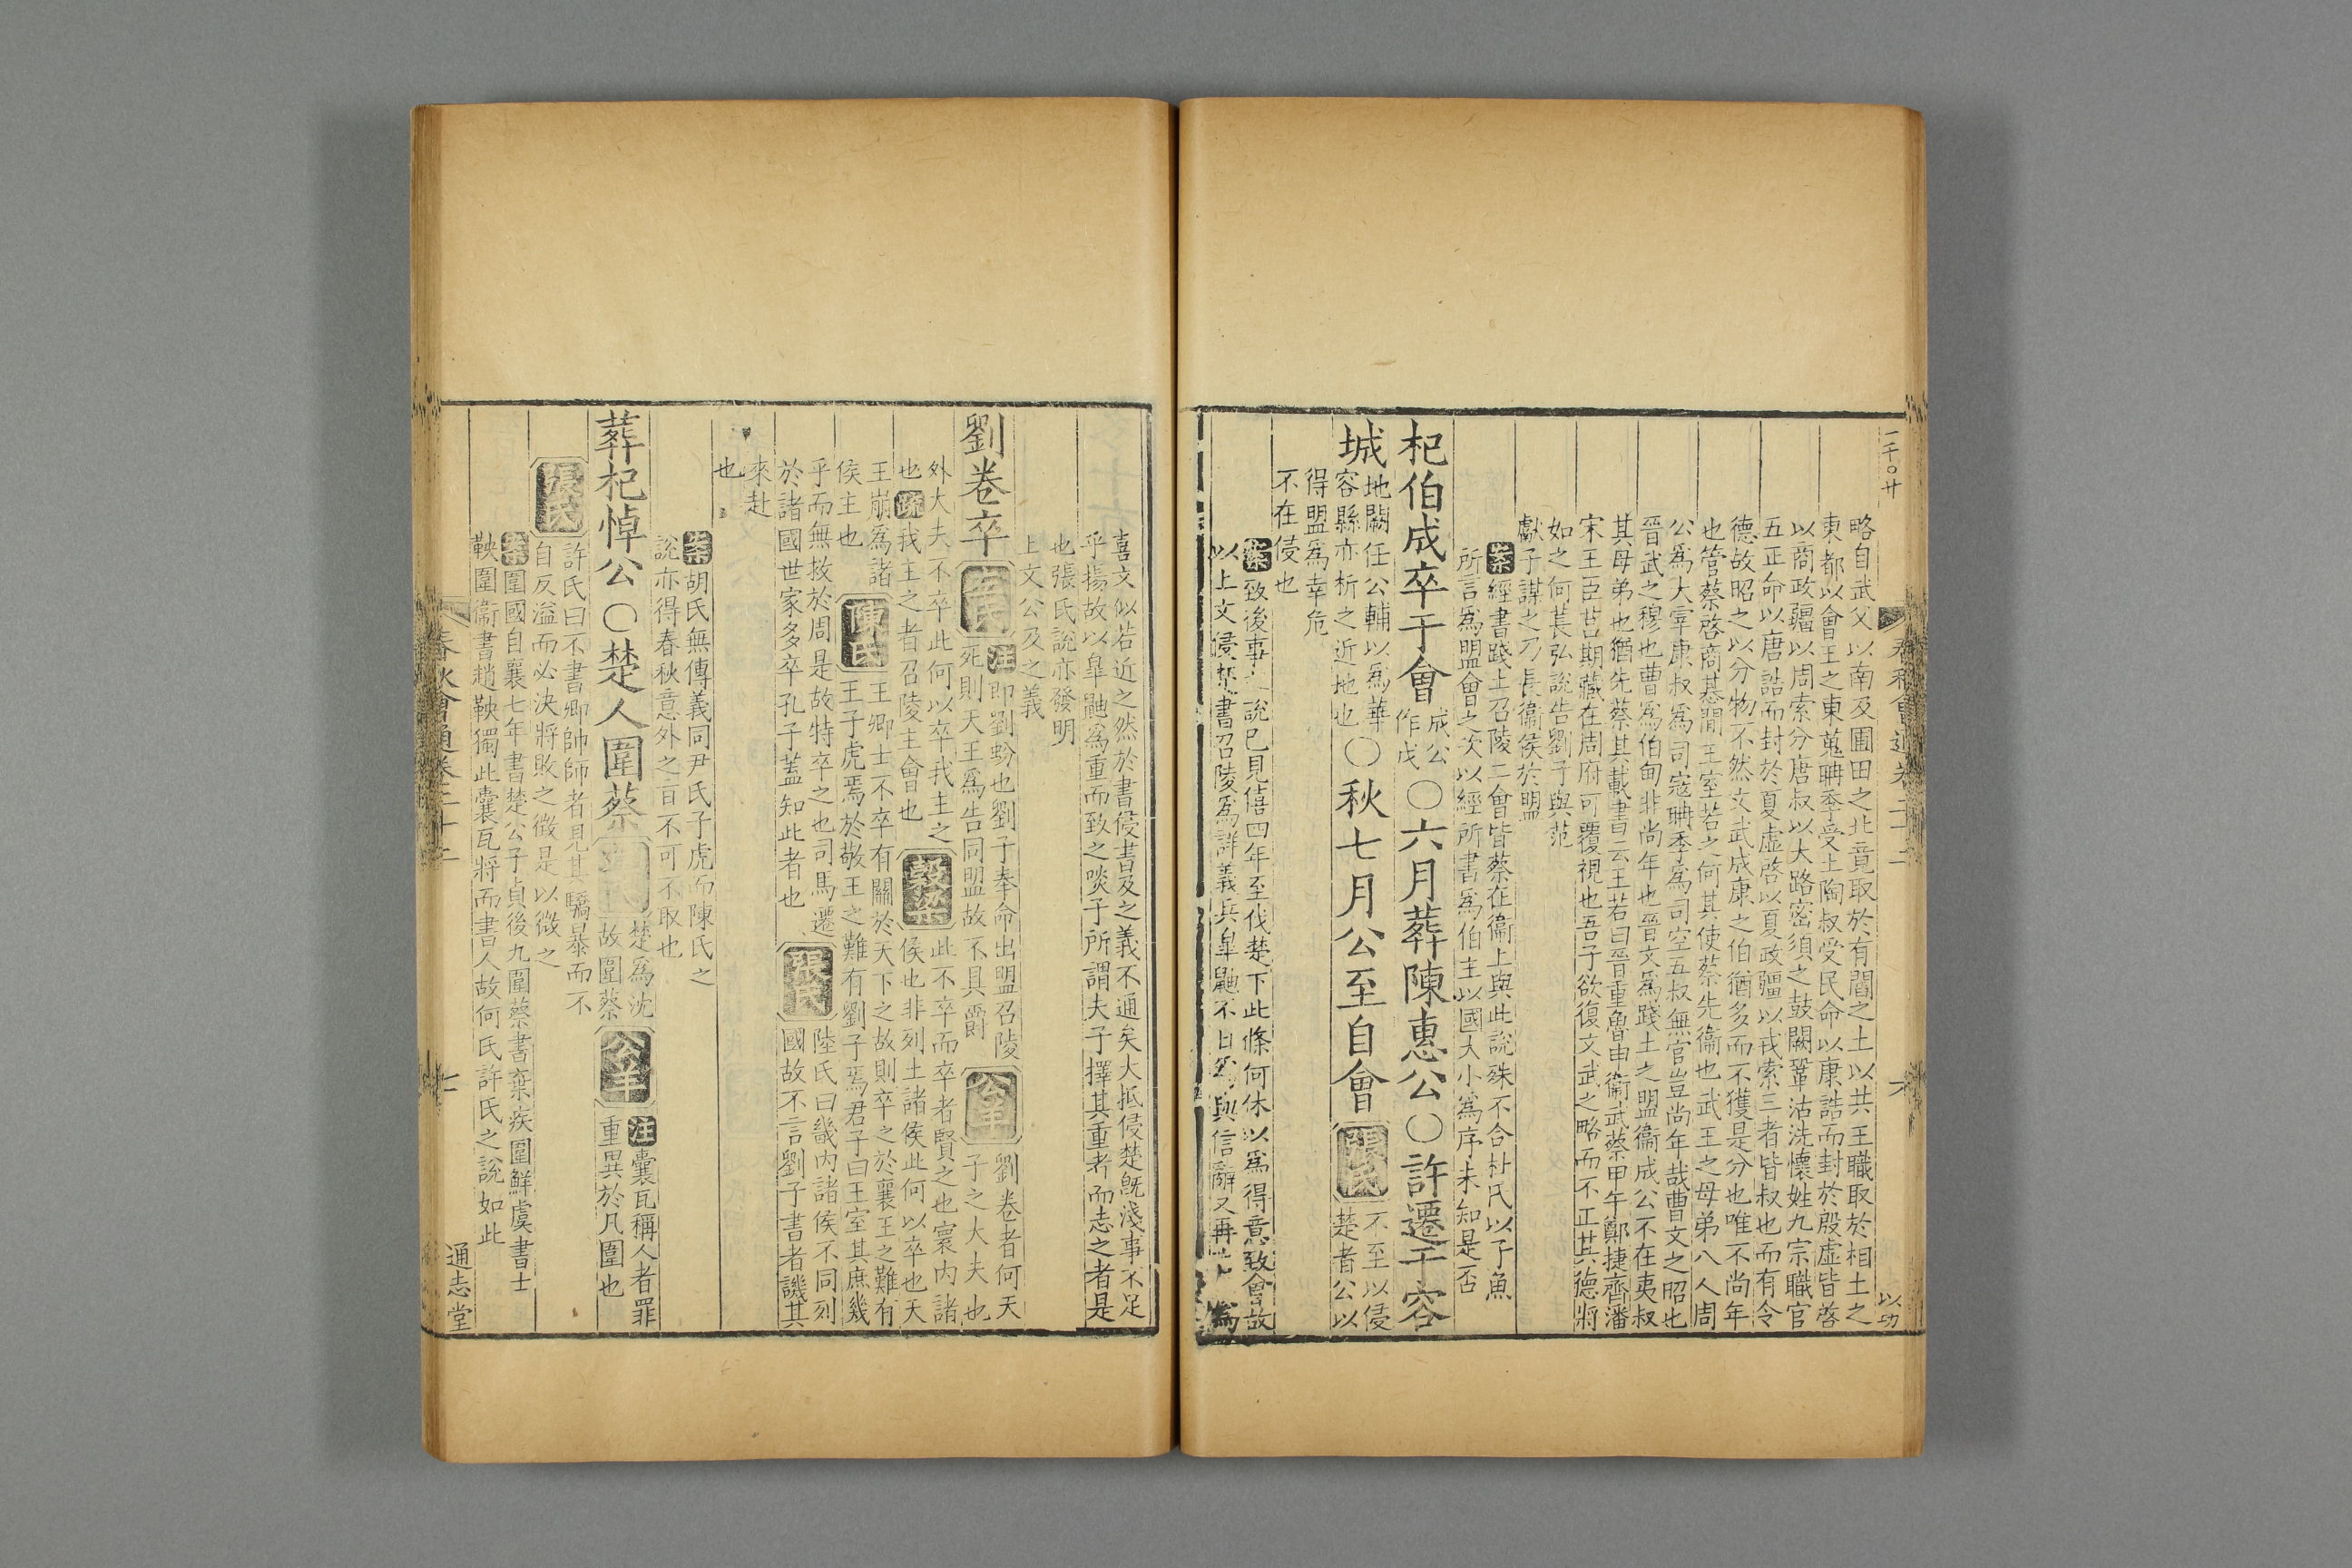 一千〇廿
春秋會通卷二十二
六
以功
略自武父以南及圃田之北竟取於有閻之土以共王職取於相土之
東都以會王之東蒐聃季受土陶叔受民命以康誥而封於殷虛皆啓
以商政疆以周索分唐叔以大路密須之鼓闕鞏沽洗懷姓九宗職官
五正命以唐誥而封於夏虛啓以夏政疆以戎索三者皆叔也而有令
德故昭之以分物不然文武成康之伯猶多而不獲是分也唯不尚年
也管蔡啓商惎間王室若之何其使蔡先衞也武王之母弟八人周
公爲大宰康叔爲司寇聃季爲司空五叔無官豈尚年哉曹文之昭也
晉武之穆也曹爲伯甸非尚年也晉文爲踐土之盟衞成公不在夷叔
其母弟也猶先蔡其載書云王若曰晉重魯申衞武蔡甲午鄭捷齊潘
宋王臣莒期藏在周府可覆視也吾子欲復文武之略而不正其德將
如之何萇弘說告劉子與范
獻子謀之乃長衞侯於盟
案經書踐土召陵二會皆蔡在衞上與此說殊不合杜氏以子魚
所言爲盟會之次以經所書爲伯主以國大小爲序未知是否
杞伯成卒于會成公作戊〇六月葬陳惠公〇許遷于容
城地闕任公輔以爲華容縣亦析之近地也〇秋七月公至自會張氏不至以侵楚者公以
得盟爲幸危
不在侵也
案致後事之說已見僖四年至伐楚下此條何休以爲得意致會故
以上文侵楚書召陵爲詳義與皋鼬不日爲與信辭又再
喜文似若近之然於書侵書及之義不通矣大抵侵楚旣淺事不足
乎揚故以皋鼬爲重而致之啖子所謂夫子擇其重者而志之者是
也張氏說亦發明
上文公及之義
劉卷卒左氏注即劉蚡也劉子奉命出盟召陵死則天王爲告同盟故不具爵公羊劉卷者何天子之大夫也
外大夫不卒此何以卒我主之
也疏我主之者召陵主會也穀梁此不卒而卒者賢之也寰內諸侯也非列土諸侯此何以卒也天
王崩爲諸侯主也陳氏王卿士不卒有關於天下之故則卒之於襄王之難有王子虎焉於敬王之難有劉子焉君子曰王室其庶幾
乎而無救於周是故特卒之也司馬遷
於諸國世家多卒孔子蓋知此者也張氏陸氏曰畿內諸侯不同列國故不言劉子書者譏其
來赴
也
案胡氏無傳義同尹氏子虎而陳氏之
說亦得春秋意外之旨不可不取也
葬杞悼公〇楚人圍蔡左氏楚爲沈故圍蔡公羊注囊瓦稱人者罪重異於凡圍也
張氏許氏曰不書卿帥師者見其驕暴而不
自反溢而必決將敗之徵是以微之
案圍國自襄七年書楚公子貞後九圍蔡書棄疾圍鮮虞書士
鞅圍衞書趙鞅獨此囊瓦將而書人故何氏許氏之說如此
春秋會通卷二十二
七
通志堂